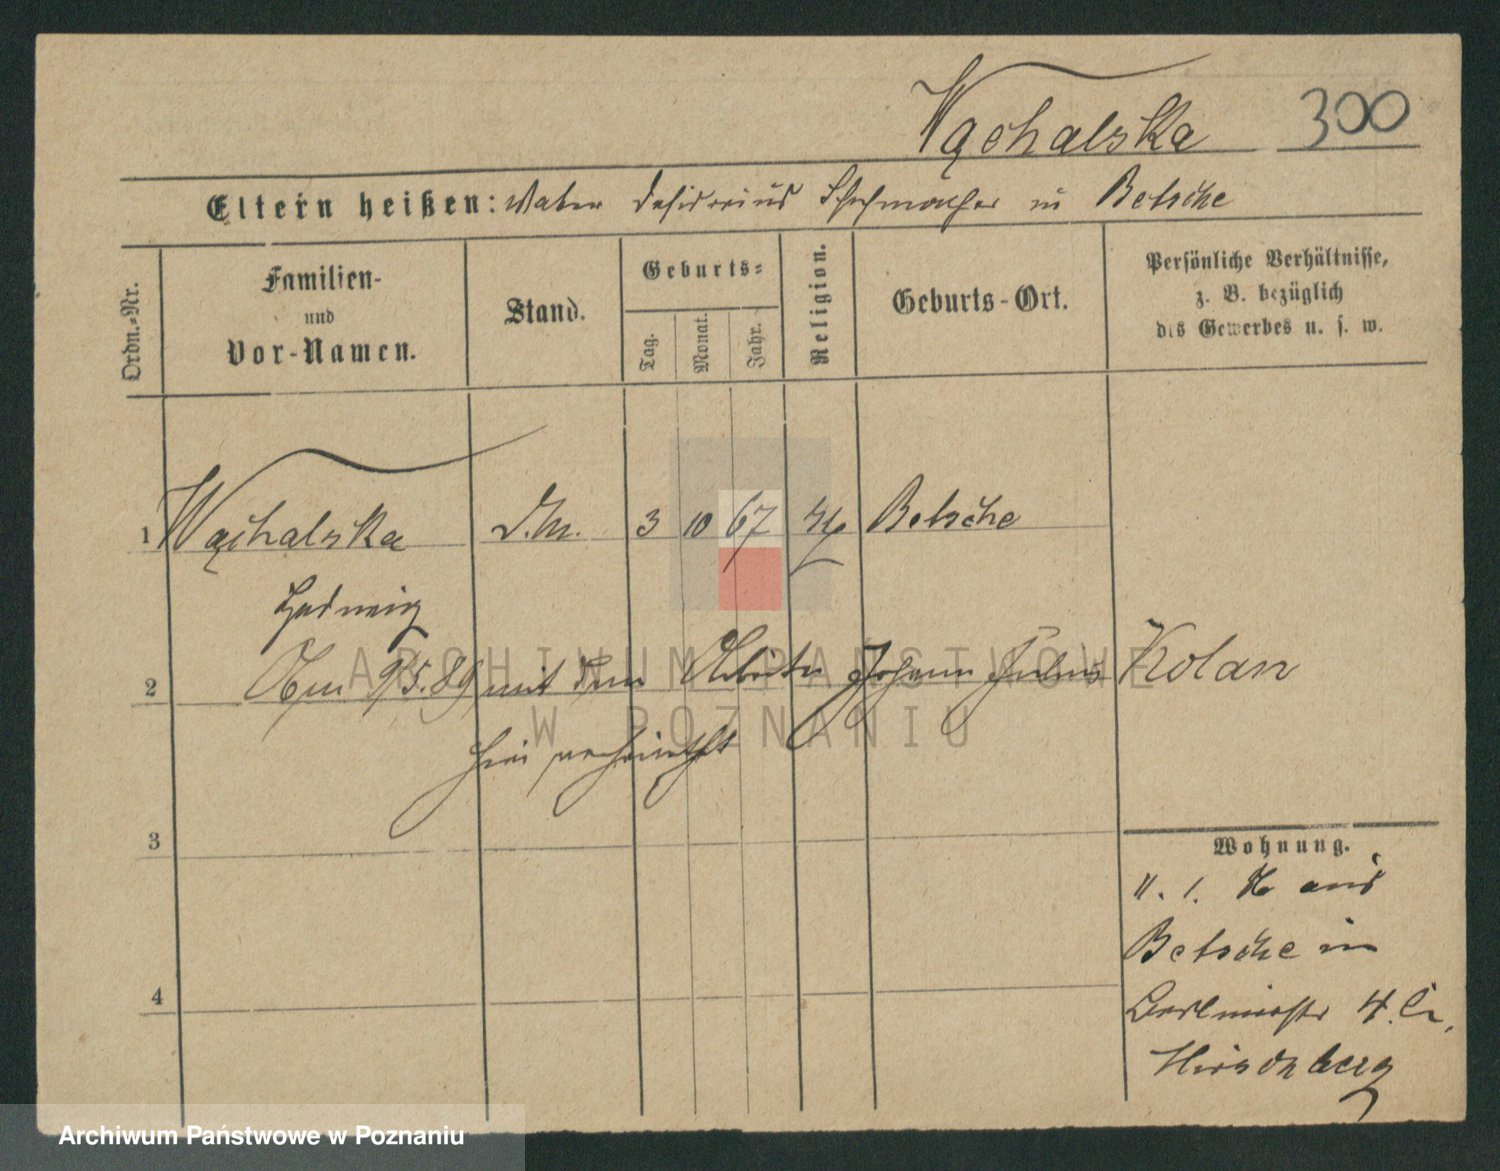 Wąchalska 300
Eltern heißen: Vater Desiderius Schuhmacher in Betsche
Ordn.-Nr.
Familien-
und
Vor-Namen.
Stand.
Geburts-
Tag.
Monat.
Jahr.
Religion.
Geburts-Ort.
Persönliche Verhältnisse,
z. B. bezüglich
des Gewerbes u. s. w.
1 Wąchalska D.M. 3 10 67 Betsche
Hedwig
2 Am 9/5.89 mit dem Arbeiter Johann Julius Kolan
hier verheirathet
3
Wohnung.
4
11. 1. aus
Betsche in
4. b.
Hirschberg
ARCHIWUM PAŃSTWOWE
W POZNANIU
Archiwum Państwowe w Poznaniu